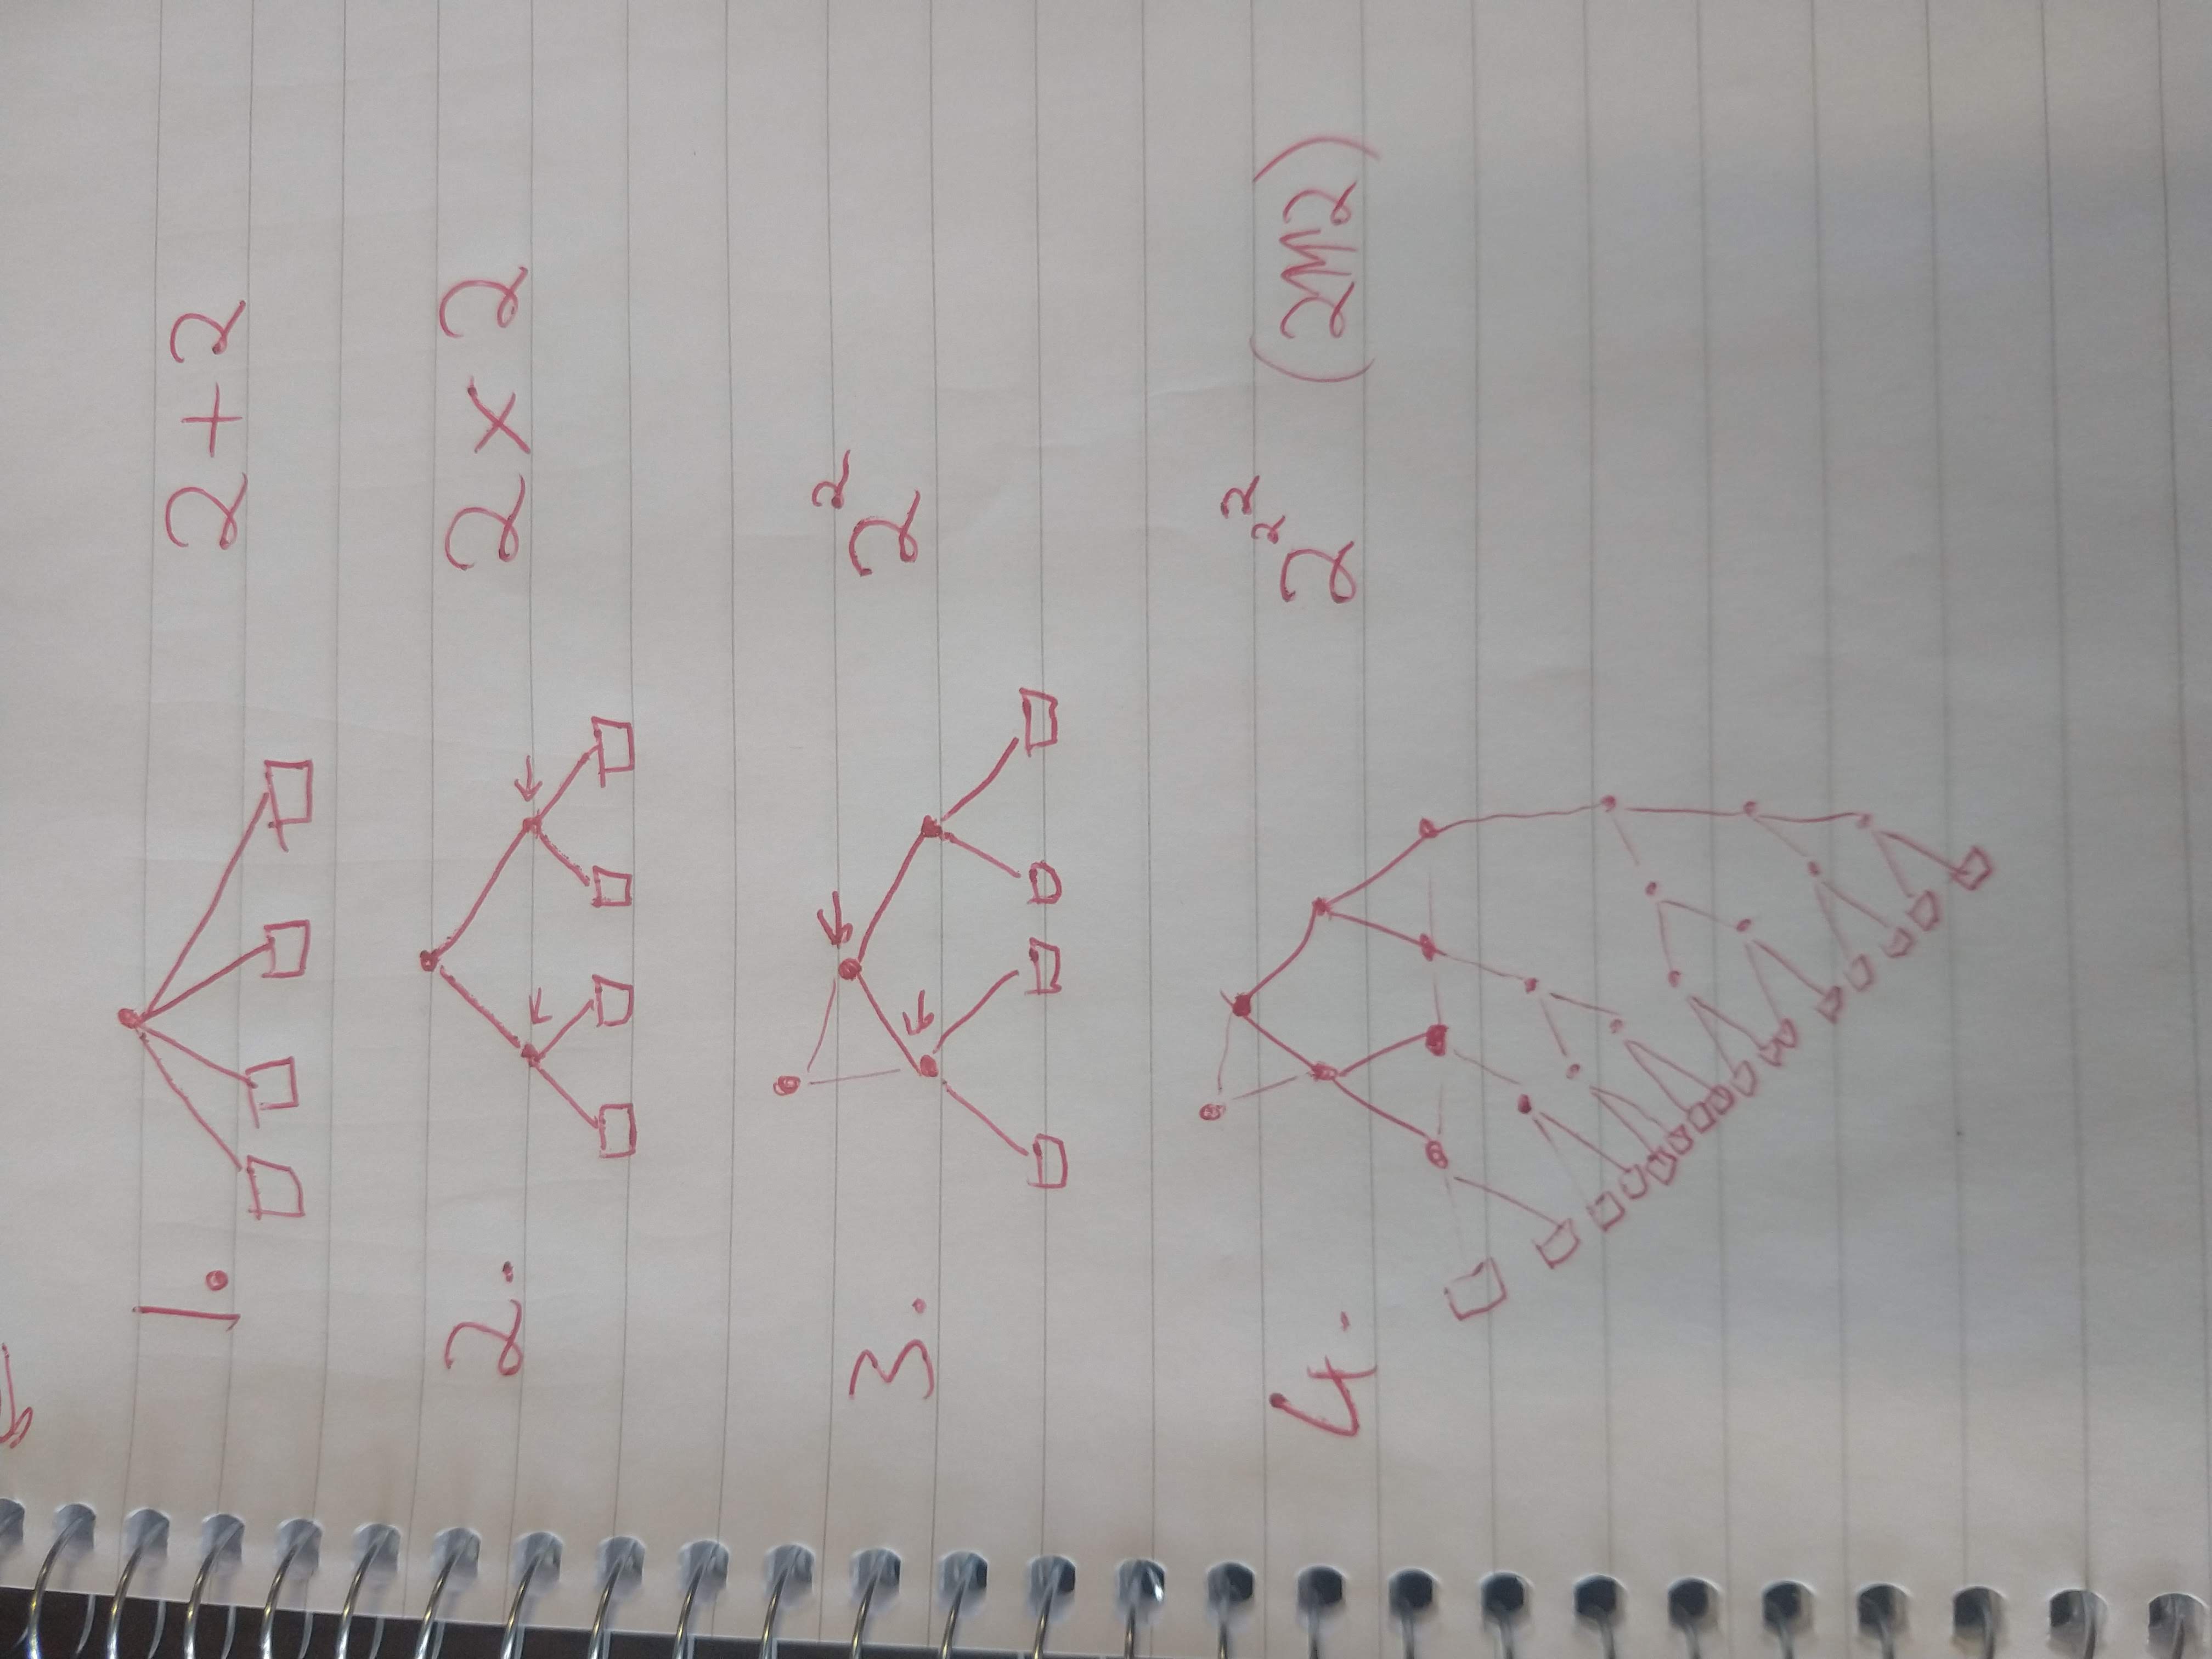 1. 2+2
2. 2×2
3. 2²
4. 2²^² (2↑↑2)